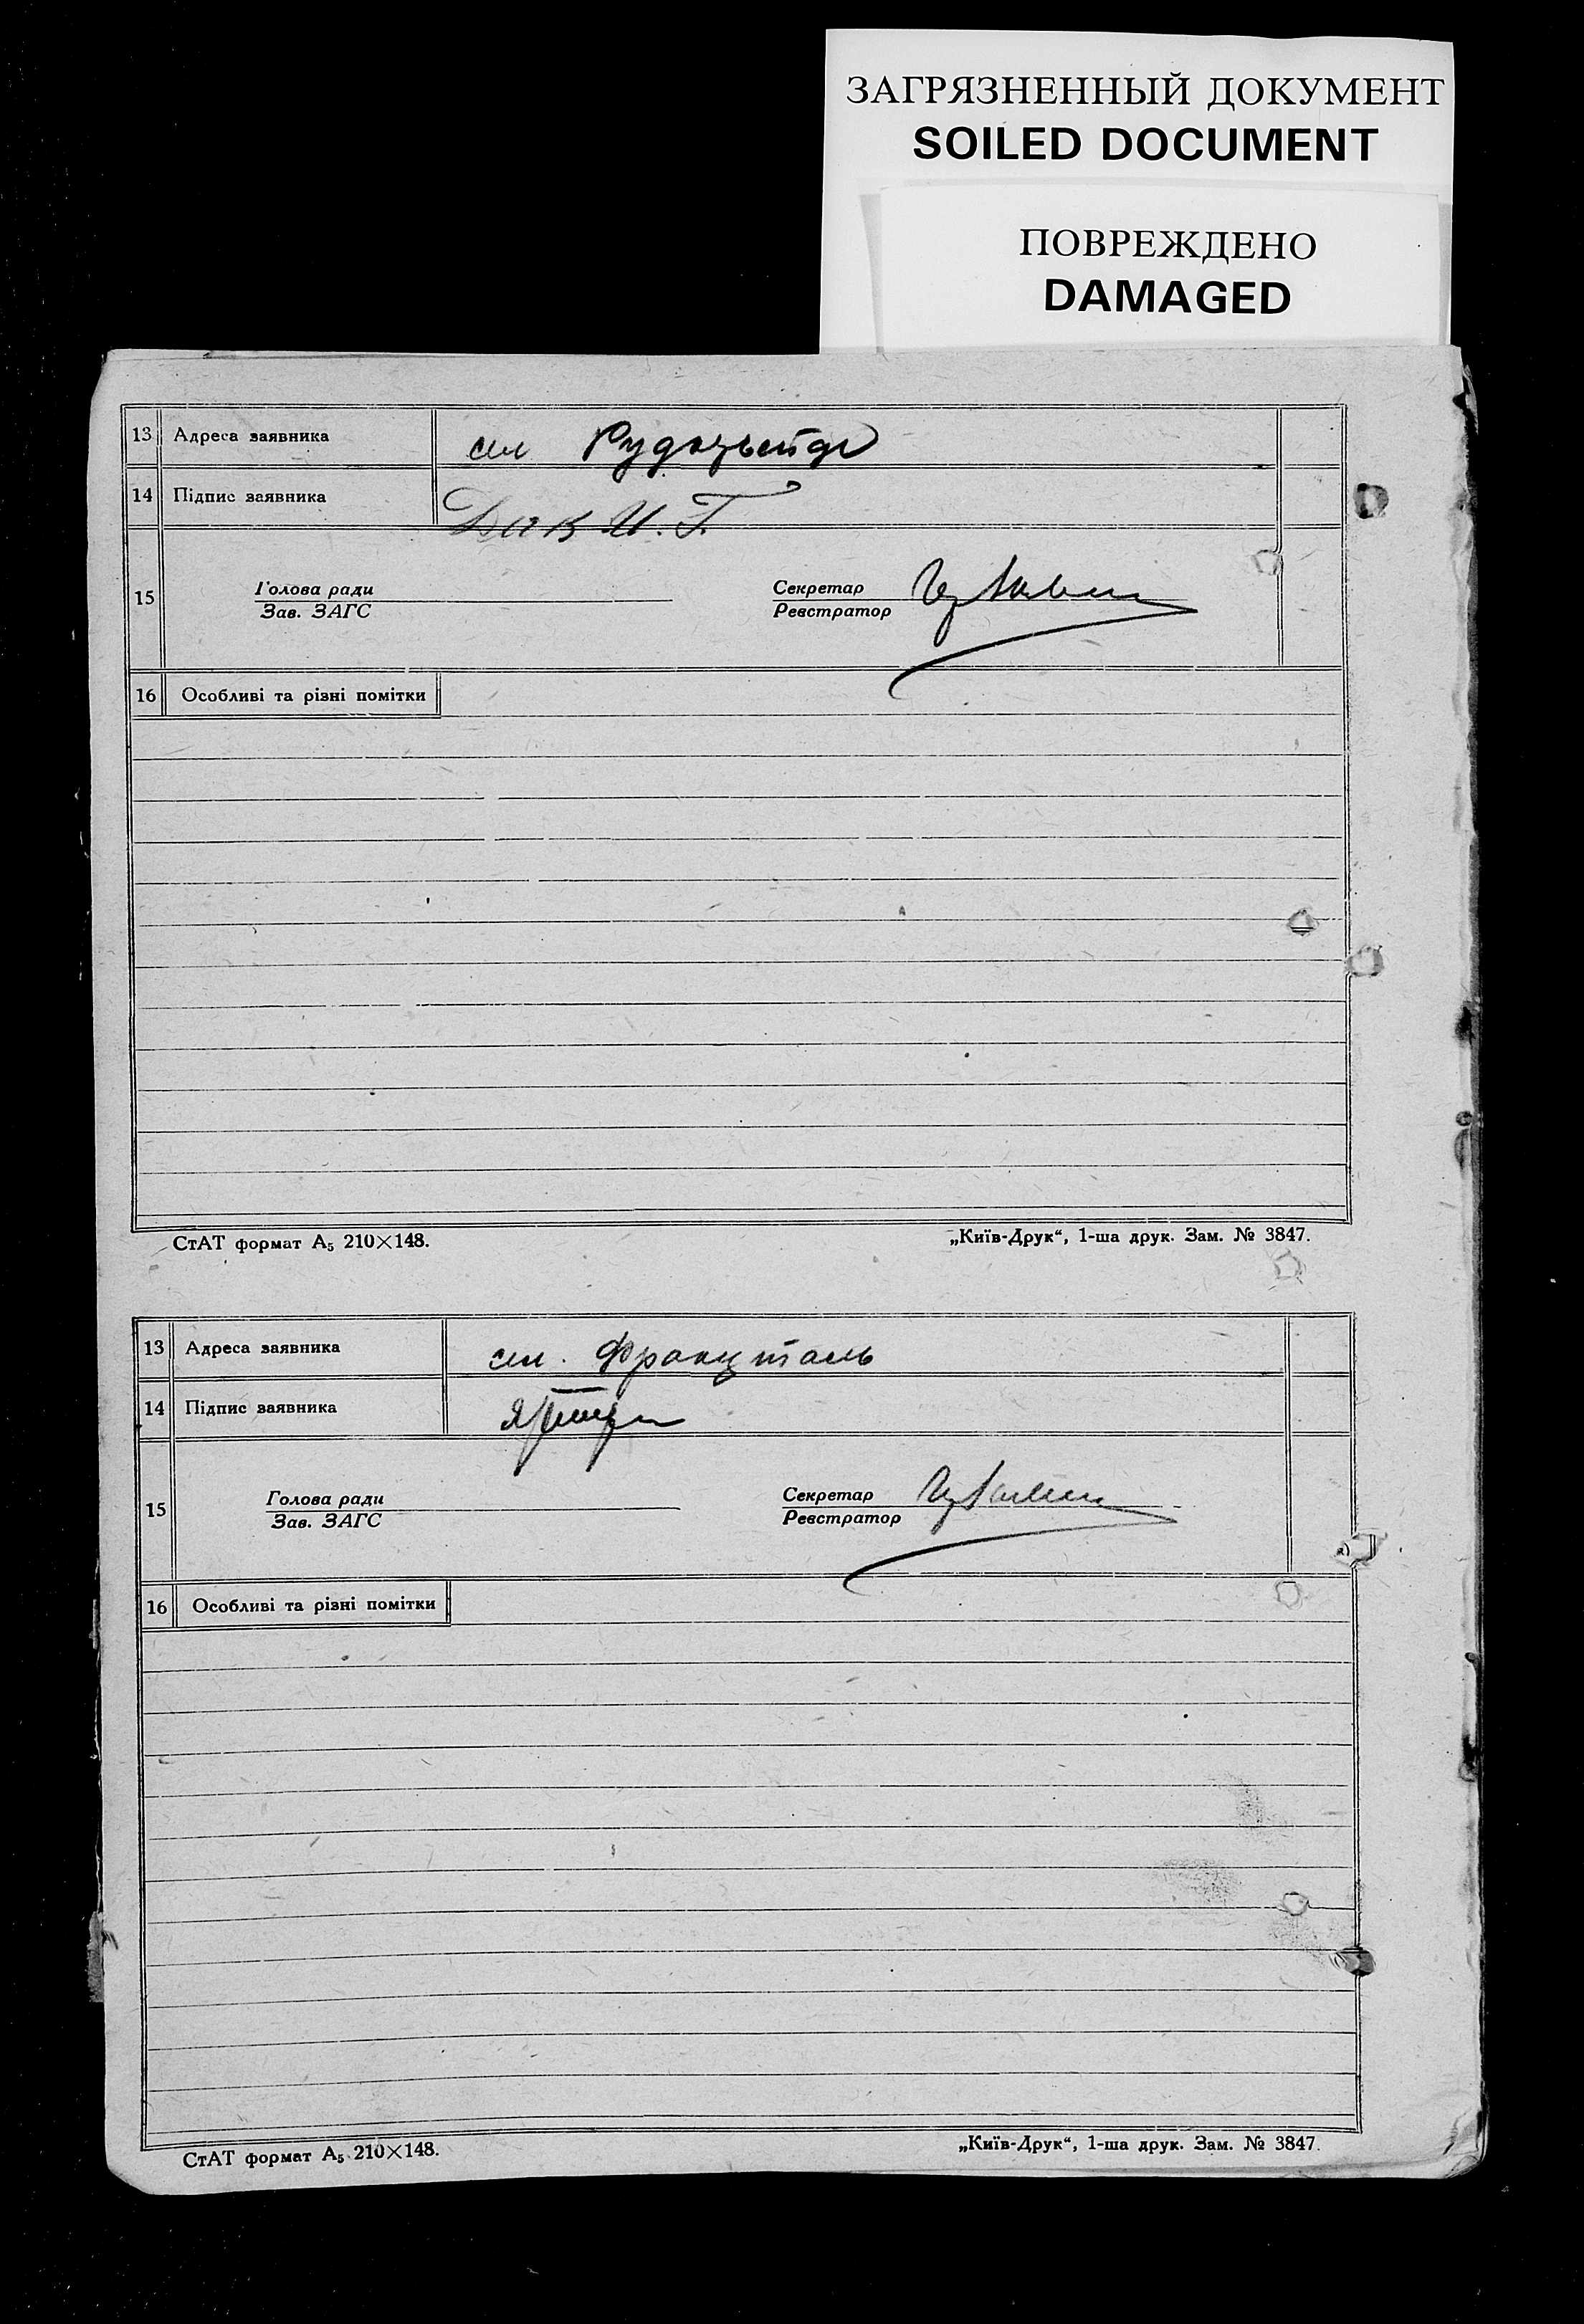 ЗАГРЯЗНЕННЫЙ ДОКУМЕНТ
SOILED DOCUMENT
ПОВРЕЖДЕНО
DAMAGED
13 Адреса заявника сел
14 Підпис заявника И. Г.
15 Голова ради Секретар
Зав. ЗАГС Реєстратор
16 Особливі та різні помітки
СтАТ формат А₅ 210×148. „Київ-Друк“, 1-ша друк. Зам. № 3847.
13 Адреса заявника сел. Француталь
14 Підпис заявника
15 Голова ради Секретар
Зав. ЗАГС Реєстратор
16 Особливі та різні помітки
СтАТ формат А₅ 210×148. „Київ-Друк“, 1-ша друк. Зам. № 3847.